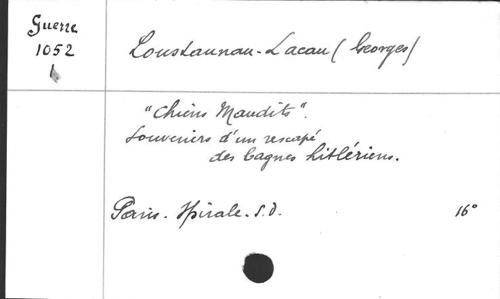 Guerre
1052
Loustaunau-Lacau (Georges)
"Chiens Maudits".
Souvenirs d'un rescapé
des bagnes hitlériens.
Paris. Spirale. S.D. 16°